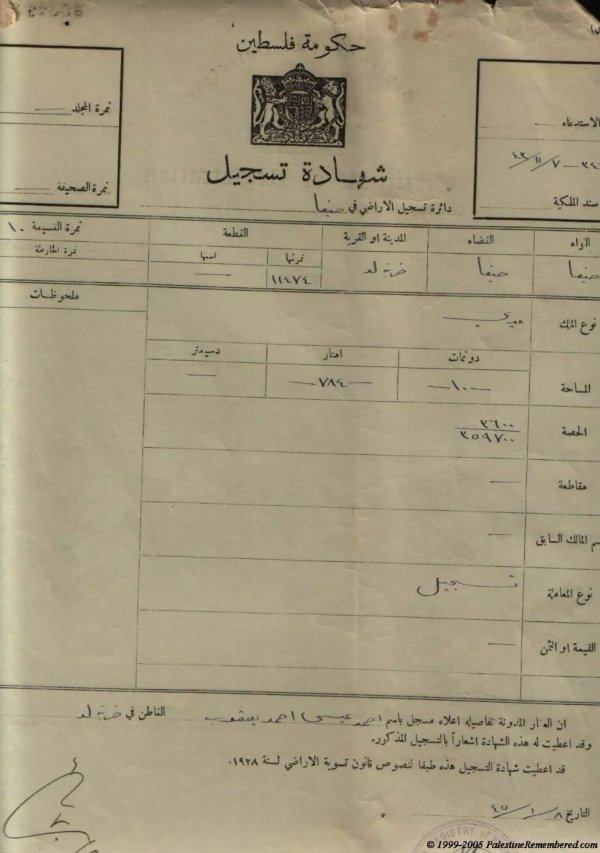 حكومة فلسطين
شهادة تسجيل
دائرة تسجيل الاراضي في حيفا
نمرة المجلد
نمرة الصحيفة
الاستدعاء
٤٣/١١/٧
سند الملكية
اللواء القضاء المدينة او القرية القطعة نمرة القسيمة ١٠
نمرتها اسمها نمرة الخارطة
حيفا حيفا خربة لد ١١٤٧٤ —
ملحوظات
نوع الملك ميري
دونمات امتار دسيمتر
المساحة —١٠— —٧٨٤— —
الحصة ٣٦٠٠
٣٥٩٧٠٠
مقاطعة —
اسم المالك السابق —
نوع المعاملة تسجيل
القيمة او الثمن —
ان العقار المدونة تفاصيله اعلاه مسجل باسم احمد عيسى احمد يعقوب القاطن في خربة لد
وقد اعطيت له هذه الشهادة اشعاراً بالتسجيل المذكور.
قد اعطيت شهادة التسجيل هذه طبقا لنصوص قانون تسوية الاراضي لسنة ١٩٢٨.
التاريخ ٤٥/١/٨
REGISTRY OF
© 1999-2005 PalestineRemembered.com